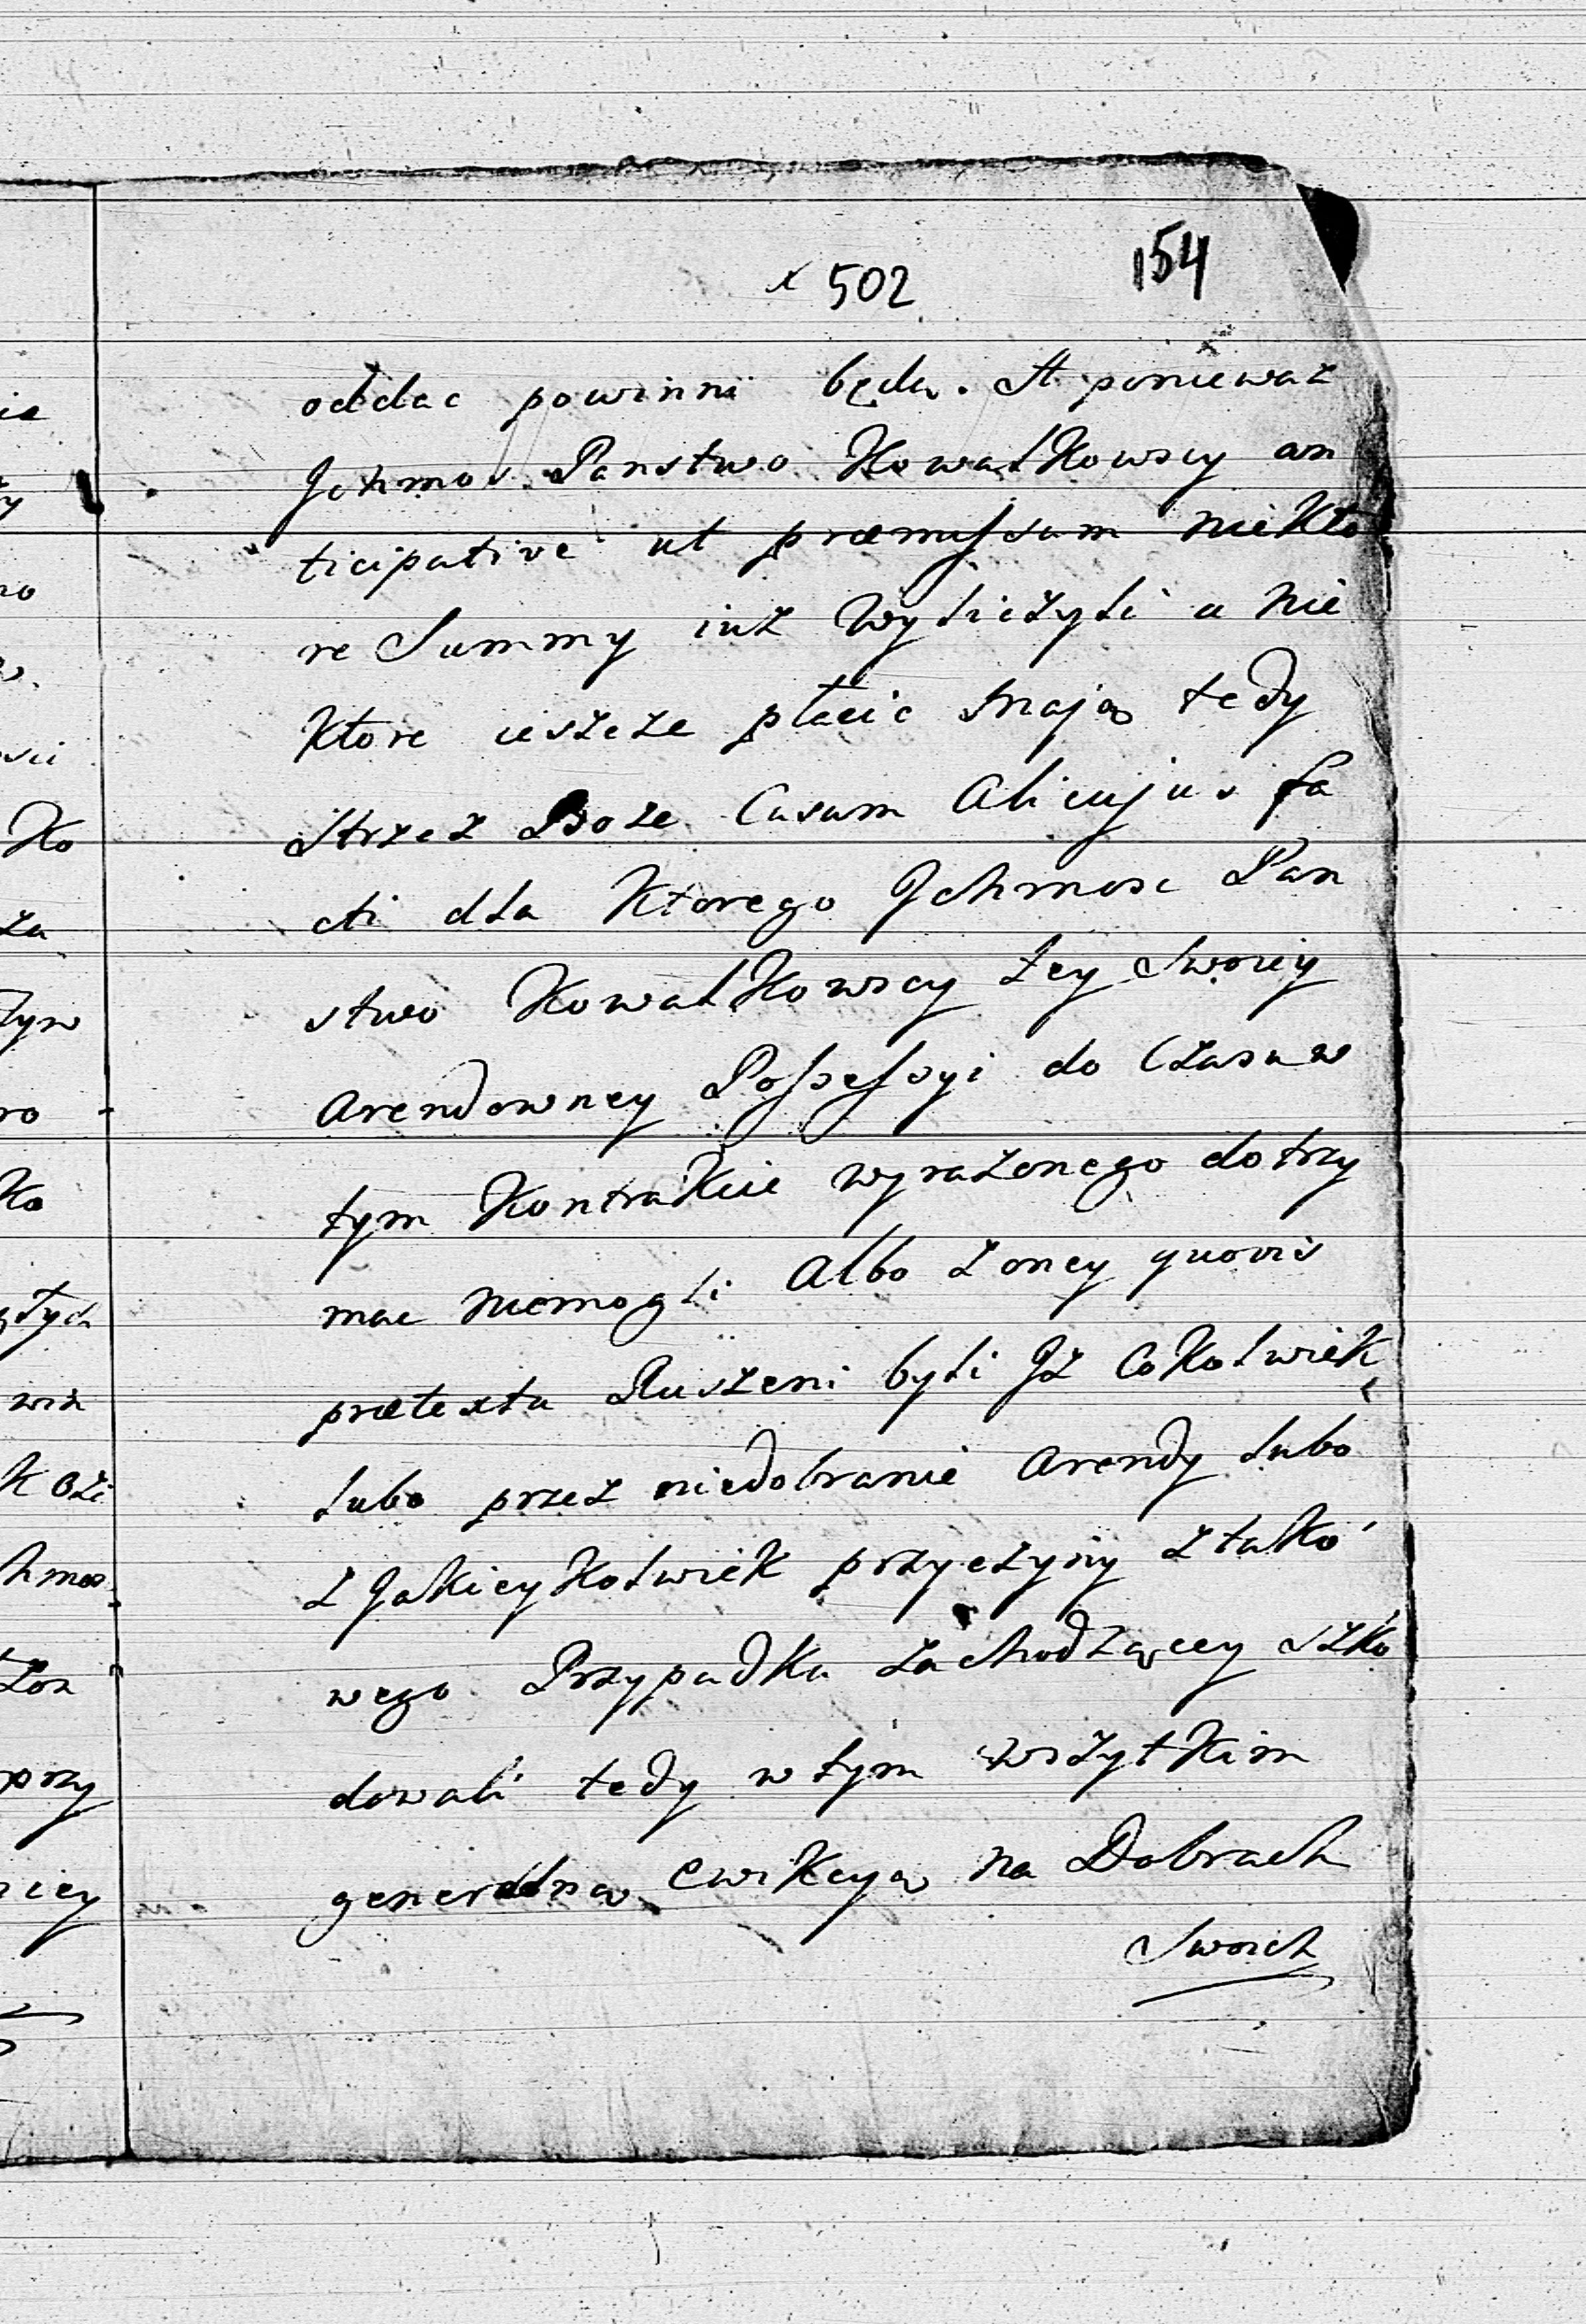 x 502
154
oddac powinni będą. A ponieważ
Ichmos. Panstwo Kowalkowscy an
ticipative ut præmissum niekto
re Summy iuz Wyliczyli a nie
ktore ieszcze płacic mają tedy
Strzez Boze Casum Alicujus fa
cti dla Ktorego Ichmosc Pan
stwo Kowalkowscy tey Swoiey
Arendowney Possessyi do Czasu w
tym Kontrakcie wyrazonego dotrzy
mac niemogli Albo zoney quovis
prætextu Ruszeni byli Iz Cokolwiek
lubo przez niedobranie Arendy lubo
z Jakieykolwiek przyczyny z tako
wego Przypadku zachodzącey szko
dowali tedy w tym wszytkim
generalną Ewikcyą na Dobrach
Swoich
ie
ro
Ko
za
ro
Ko
win
przy